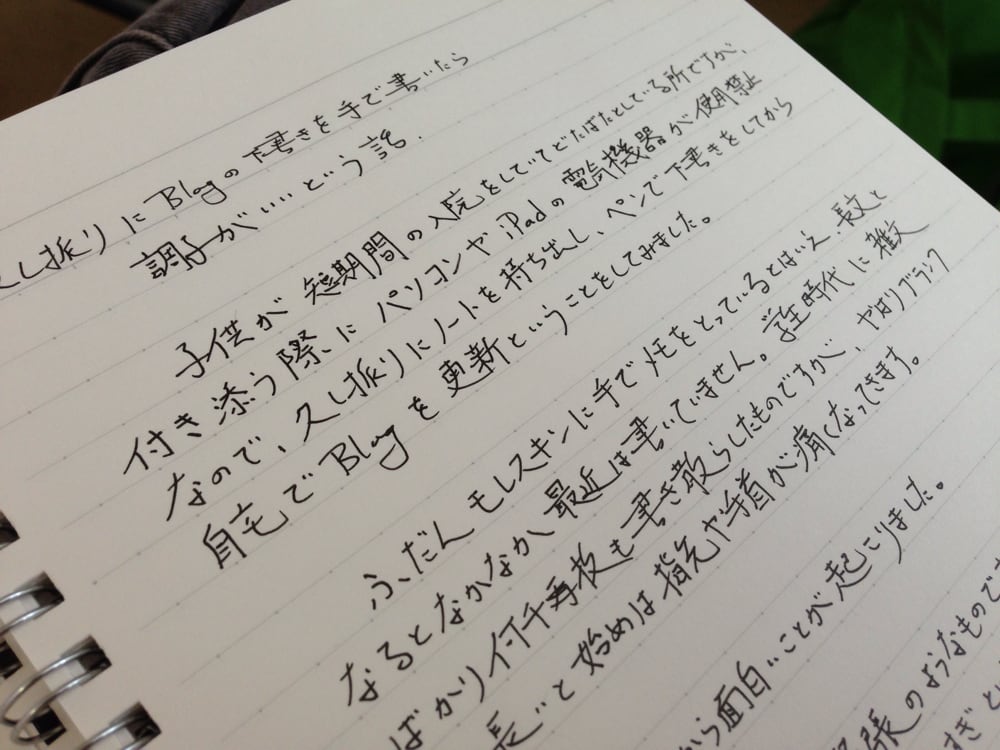 久し振りにBlogの下書きを手で書いたら
調子がいい…という話.
子供が短期間の入院をしていてどたばたとしている所ですが、
付き添う際にパソコンやiPadの電気機器が使用禁止
なので、久し振りにノートを持ち出し、ペンで下書きをしてから
自宅でBlogを更新ということをしてみました。
ふだんモレスキンに手でメモをとっているとはいえ、長文と
なるとなかなか最近は書いていません。学生時代に
ばかり何千枚も書き散らしたものですが、やはりブランク
長いと始めは指先や手首が痛くなってきます。
から面白いことが起こりました。
張のようなもので
すぎと